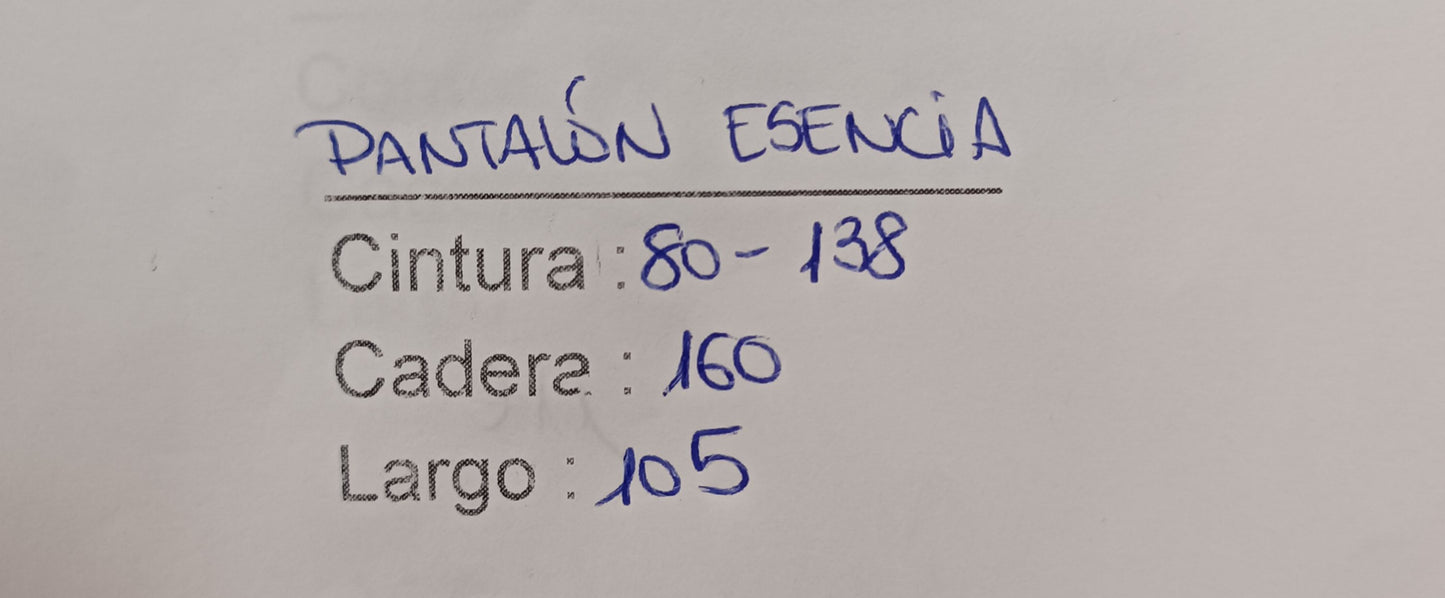 PANTALÓN ESENCiA
Cintura : 80 - 138
Cadera : 160
Largo : 105